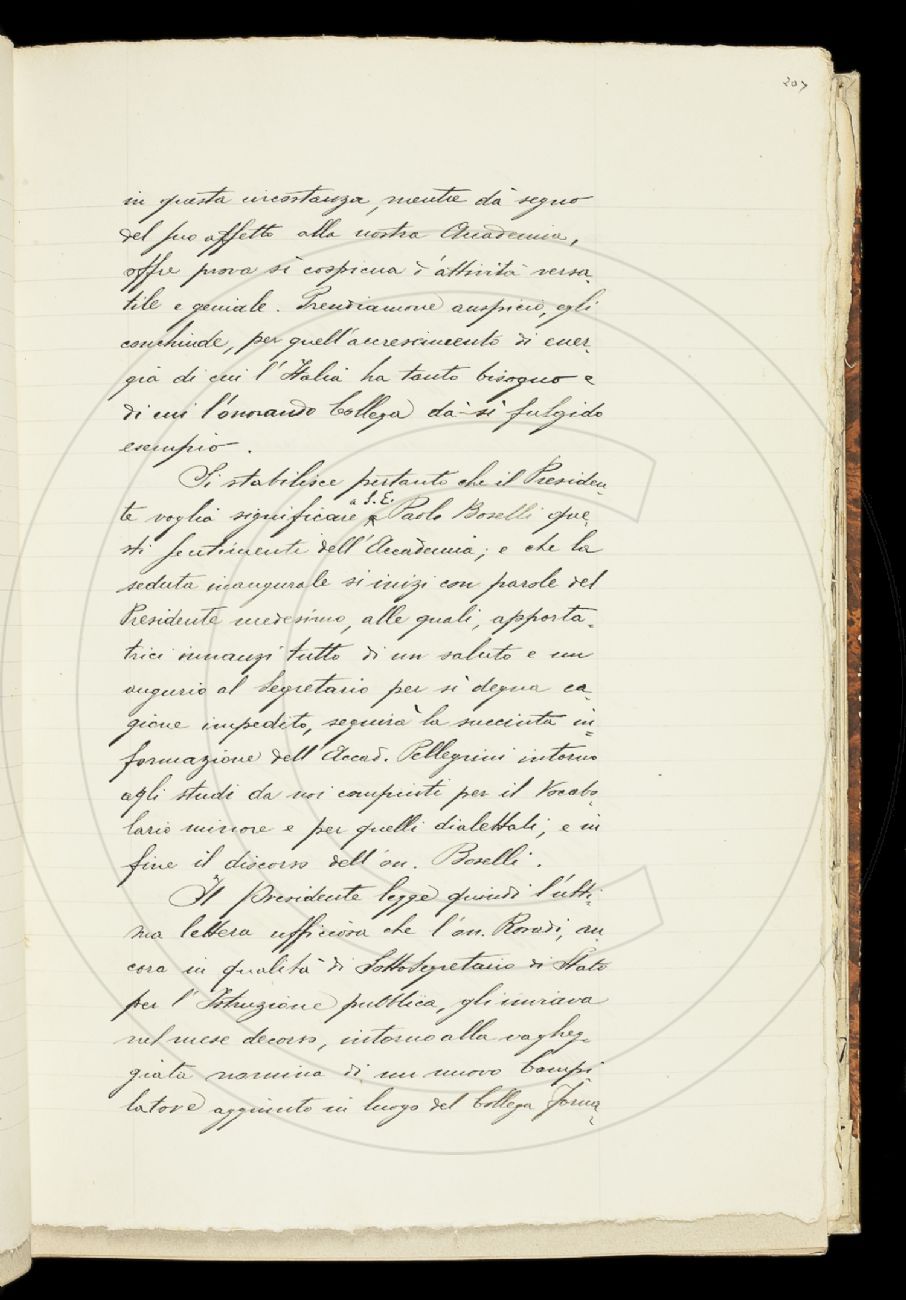 207
in questa circostanza, mentre dà segno
del suo affetto alla nostra Accademia,
offre prova sì cospicua d'attività versa-
tile e geniale. Prendiamone auspicio, egli
conchiude, per quell'accrescimento di ener-
gia di cui l'Italia ha tanto bisogno e
di cui l'onorando Collega dà sì fulgido
esempio.
Si stabilisce pertanto che il Presiden-
te voglia significare a S. E. Paolo Boselli que-
sti sentimenti dell'Accademia; e che la
seduta inaugurale si inizi con parole del
Presidente medesimo, alle quali, apporta-
trici innanzi tutto di un saluto e un
augurio al Segretario per sì degna ca-
gione impedito, seguirà la succinta in-
formazione dell'Accad. Pellegrini intorno
agli studi da noi compiuti per il Vocabo-
lario minore e per quelli dialettali, e in
fine il discorso dell'on. Boselli.
Il Presidente legge quindi l'ulti-
ma lettera ufficiosa che l'on. Rosadi, an-
cora in qualità di Sottosegretario di Stato
per l'Istruzione pubblica, gli inviava
nel mese decorso, intorno alla vagheg-
giata nomina di un nuovo Compi-
latore aggiunto in luogo del Collega Forna-